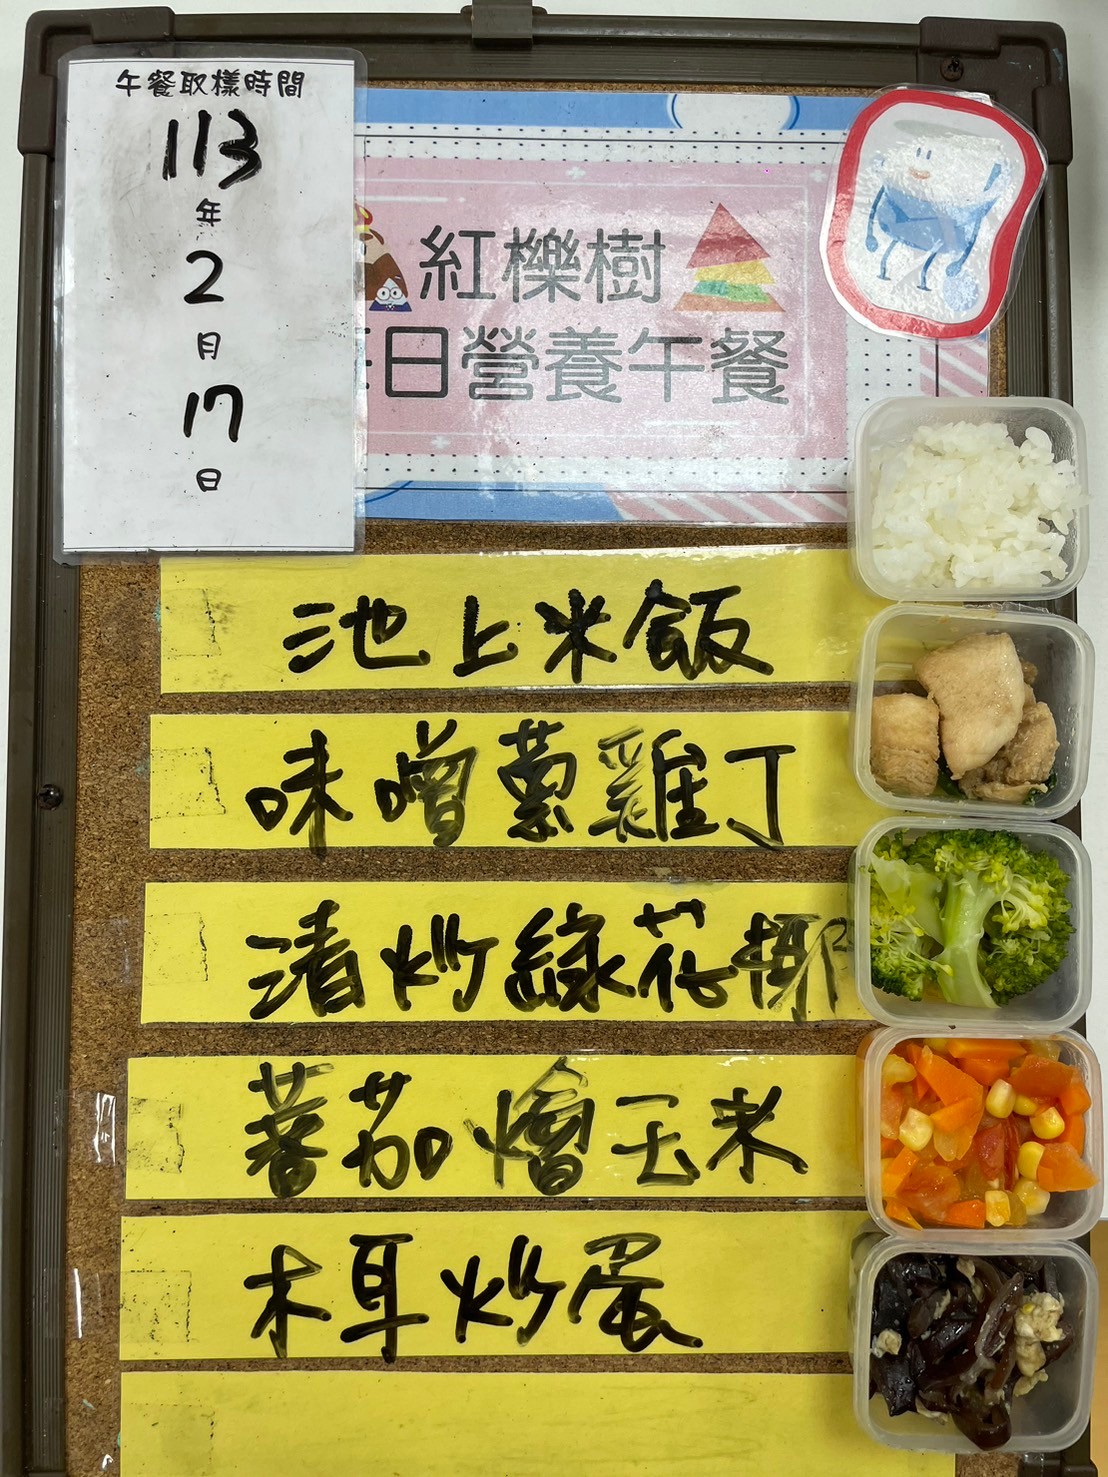 午餐取樣時間
113
年
2
月
17
日
紅櫟樹
每日營養午餐
池上米飯
味噌蔥雞丁
清炒綠花椰
蕃茄燴玉米
木耳炒蛋